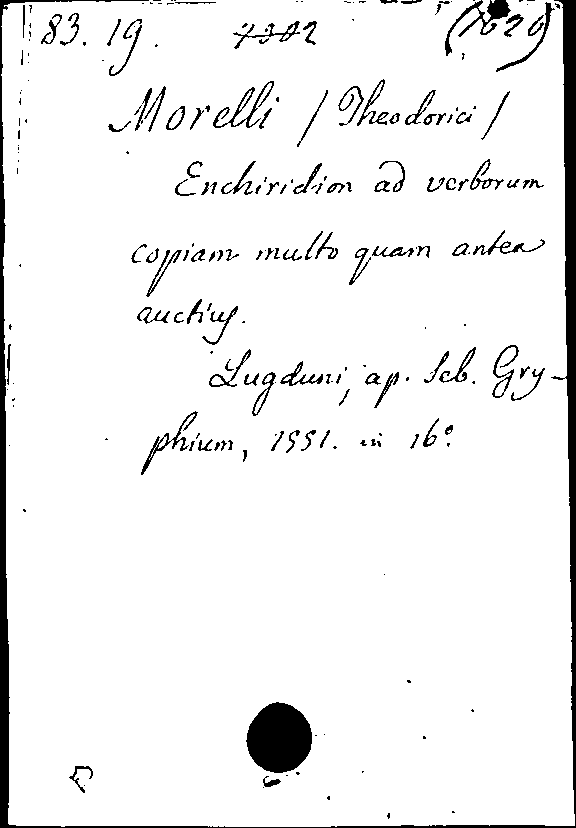 83. 19. 7302 (1620)
Morelli / Theodorici /
Enchiridion ad verborum
copiam multo quam antea
auctius.
Lugduni, ap. Seb. Gry-
phium, 1551. in 16°.